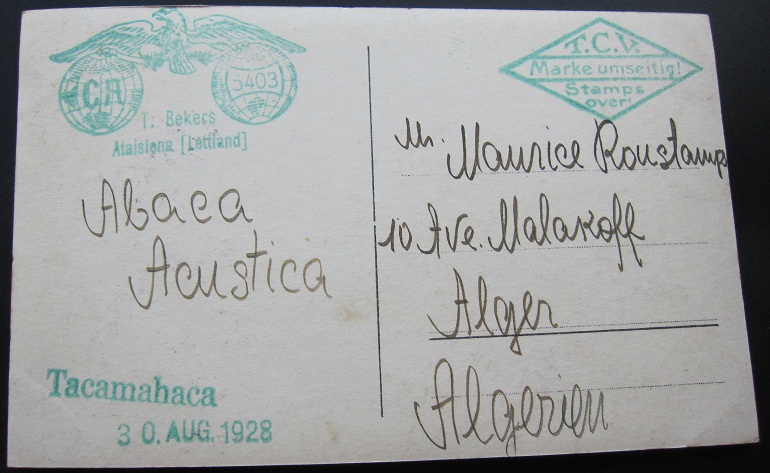 CR
5403
T. Bekers
Ataisiena [Lettland]
Abaca
Acustica
Tacamahaca
30. AUG. 1928
T.C.V.
Marke umseitig!
Stamps
over!
Mr. Maurice Roustamp
10 Ave. Malakoff
Alger
Algerien